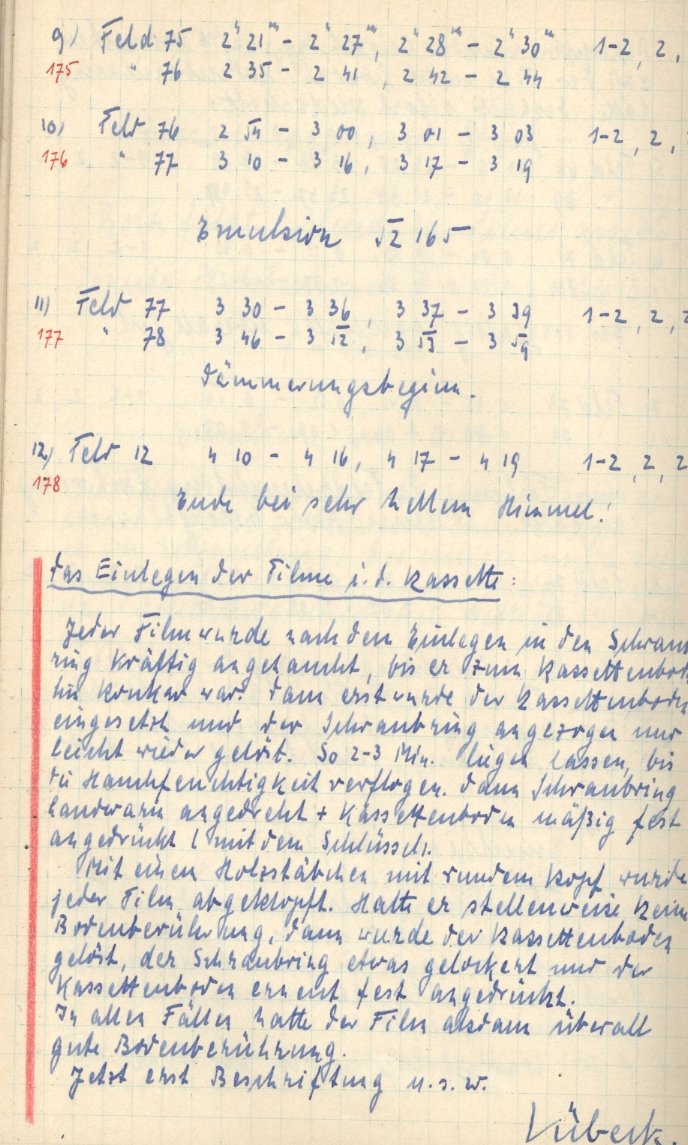 9) Feld 75 2ʰ 21ᵐ – 2ʰ 27ᵐ, 2ʰ 28ᵐ – 2ʰ 30ᵐ 1-2, 2,
175 " 76 2 35 – 2 41, 2 42 – 2 44
10) Feld 76 2 54 – 3 00, 3 01 – 3 03 1-2, 2,
176 " 77 3 10 – 3 16, 3 17 – 3 19
Emulsion 52 165
11) Feld 77 3 30 – 3 36 3 37 – 3 39 1-2, 2, 2
177 " 78 3 46 – 3 52, 3 53 – 3 59
Dämmerungsbeginn.
12) Feld 12 4 10 – 4 16, 4 17 – 4 19 1-2, 2, 2
178
Ende bei sehr hellem Himmel!
Das Einlegen der Filme i. d. Kassette:
Jeder Film wurde nach dem Einlegen in den Schraub
ring kräftig angehaucht, bis er zum Kassettenbod
hin konkav war. Dann erst wurde der Kassettenboden
eingesetzt und der Schraubring angezogen und
leicht wieder gelöst. So 2-3 Min. liegen lassen, bis
die Hauchfeuchtigkeit verflogen. Dann Schraubring
handwarm angedreht + Kassettenboden mäßig fest
angedrückt (mit dem Schlüssel.
Mit einem Holzstäbchen mit rundem Kopf wurde
jeder Film abgeklopft. Hatte er stellenweise keine
Bodenberührung, dann wurde der Kassettenboden
gelöst, der Schraubring etwas gelockert und der
Kassettenboden erneut fest angedrückt.
In allen Fällen hatte der Film alsdann überall
gute Bodenberührung.
Jetzt erst Beschriftung u.s.w.
Lübeck.